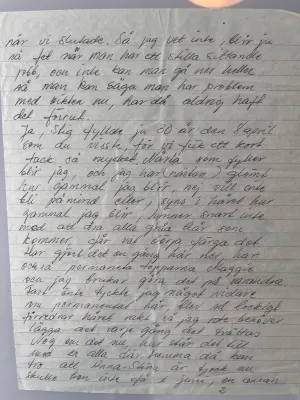 når vi slutade. Så jag vet inte, blir ju
så fet när man har ett stilla sittande
jobb, och inte kan man gå ner heller
så man kan säga man har problem
med vikten nu, har då aldrig haft
det förut.
Ja, Stig fyllde ju 50 år den 8 april
som du visste, för vi fick ett kort
tack så mycket. Nästa som fyller
blir jag, och jag har (nästan) glömt
hur gammal jag blir, nej vill inte
bli påmind eller, syns i håret hur
gammal jag blir, hinner snart inte
med att dra alla gråa hår som
kommer, får väl börja färga det.
Har gjort det en gång här hos
också permaneta topparna Maggie
och jag brukar göra det på varandra.
Fast inte tyckte jag något vidare
om permanenten blir för lockigt
föredrar hårt rakt så jag inte behöver
lägga det varje gång det tvättas
Nog om det nu, hur står det till
med er alla där hemma då, kan
tro att Anna-Stina är tjock nu
skulle hon inte få i juni, en annan
2